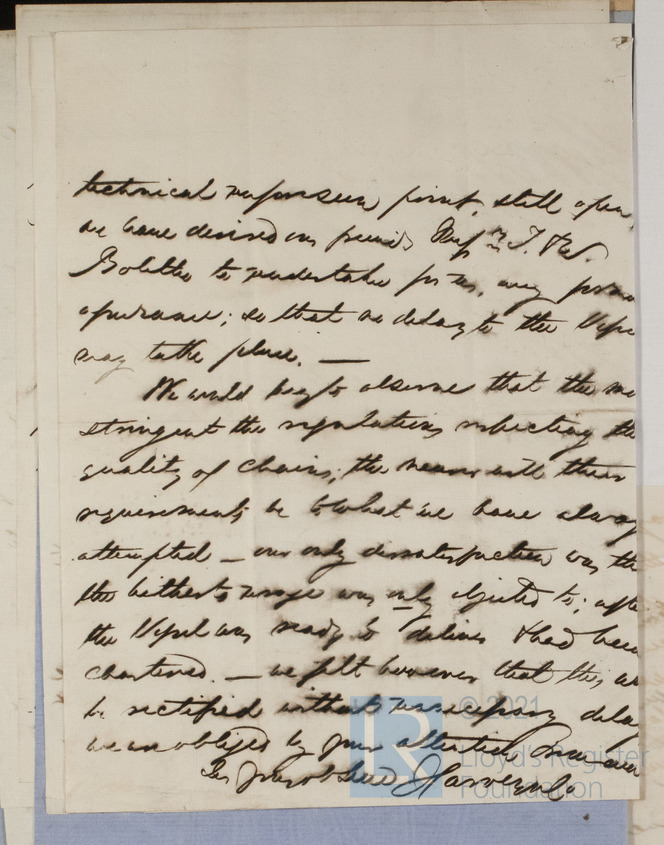 technical point, still open,
we have desired our friends Messrs T. & W.
Bolitho to undertake for us, any
; so that no delay to the Vessel
may take place. —
We would beg to observe that the
stringent the regulations respecting the
quality of chains, the nearer will their
requirements be to what we have
attempted — our only dissatisfaction was
the hitherto usage was only objected to; after
the Vessel was ready to deliver & had been
chartered. — we felt however that this
be rectified without unnecessary
we are obliged by your attention
Harvey & Co
© 2021
LR
Lloyd's Register
Foundation